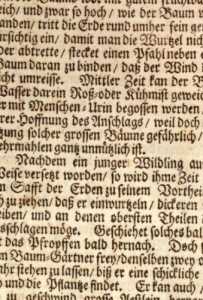 lich, und zwar so hoch / wie der Baum v
anden / tritt die Erde rund umher fein ge
ursichtig ein / damit man die Wurtzel nich
der abtrette / stecket einen Pfahl neben
Baum daran zu binden / daß der Wind i
icht umreisse. Mittler Zeit kan der B
Wasser darein Roß- oder Kühmist geweic
er mit Menschen-Urin begossen werden
rer Hoffnung des Anschlags / weil doch
tzung solcher grossen Bäume gefährlich /
ehrmahlen gantz unnützlich ist.
Nachdem ein junger Wildling au
Weise versetzt worden / so wird ihme Zeit
n Safft der Erden zu seinem Vorthei
h zu ziehen / daß er einwurtzeln / dickeren
eiben / und an denen obersten Theilen
usschlagen möge. Geschiehet solches bal
t das Pfropffen bald hernach. Doch
m Baum-Gärtner frey / denselben zwey o
ahr stehen zu lassen / biß er eine schickliche
und die Pflantze findet. Er kan auch /
geschwind grosse